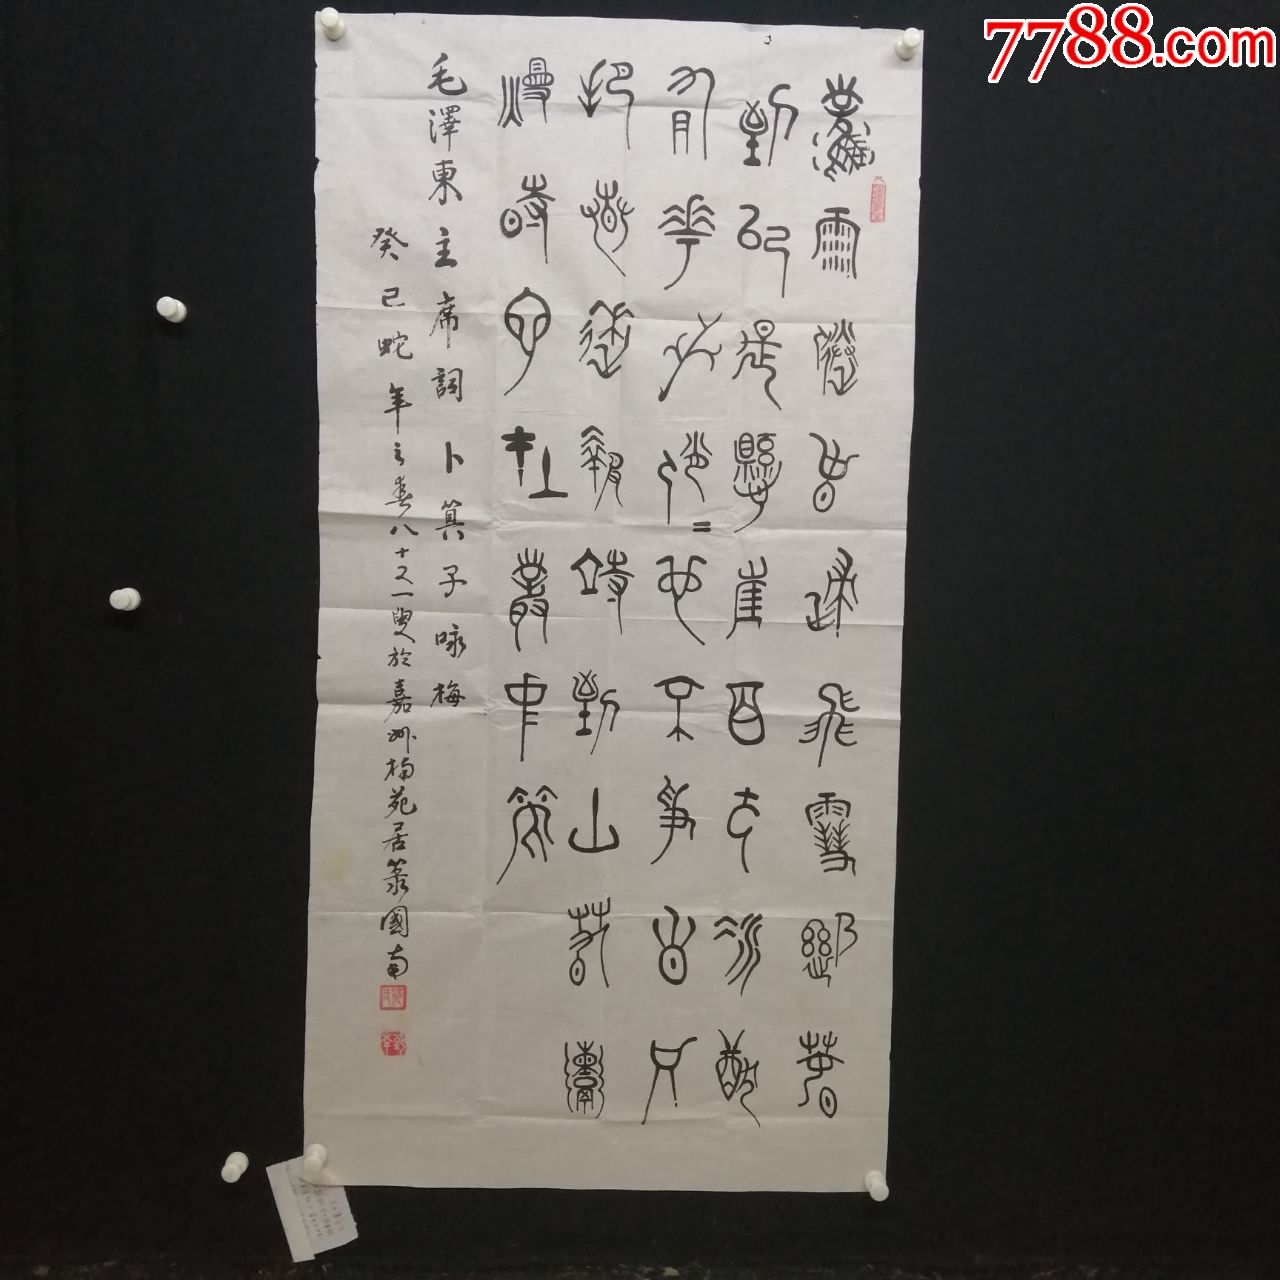 7788.com
風雨送春歸飛雪迎春
到已是懸崖百丈冰猶
有花枝俏=也不爭春只
把春來報待到山花爛
漫時她在叢中笑
毛澤東主席詞卜算子咏梅
癸巳蛇年之春八十又一叟於嘉州梅苑居篆國南